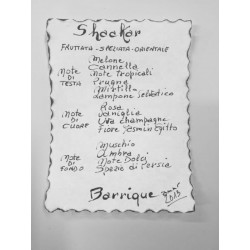 Shaokar
FRUTTATA - SPEZIATA - ORIENTALE
Melone
Cannella
NOTE DI TESTA
Note Tropicali
Prugna
Mirtilli
Lampone Selvatico
Rosa
NOTE DI CUORE
Vaniglia
Uva champagne
Fiore Jasmin
Muschio
NOTE DI FONDO
Ambra
Note Dolci
Spezie di Persia
Barrique
2013